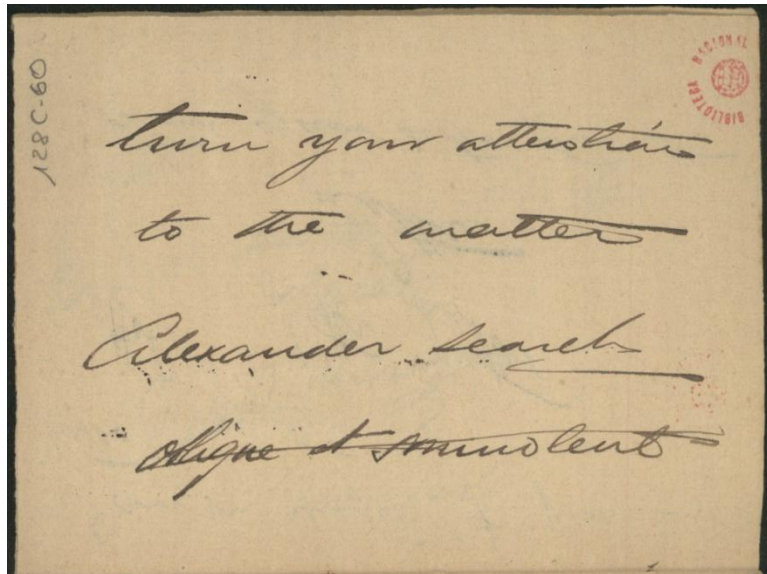 128C-60
BIBLIOTECA NACIONAL
turn your attention
to the matter
Alexander Search
oblique et somnolent